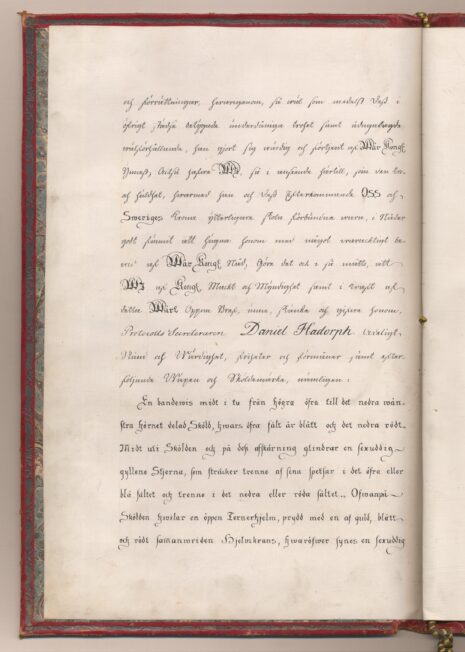 och förrättningar, hvarigenom, så wäl som medelst dess i
öfrigt städse betygade underdåniga trohet samt ådagalagde
wälförhållande, han gjort sig wärdig och förtjent af Wår Kongl.
Ynnest; Altså hafwe WJ, så i anseende härtill, som den tro
och huldhet, hwarmed han och dess Efterkommande OSS och
Sweriges Krona ytterligare skola förbundne wara, i Nåder
godt funnit att hugna honom med något warackligt be-
wis af Wår Kongl. Nåd, Göre det ock i så måtto, att
WJ af Kongl. Magt och Myndighet samt i kraft af
dette Wårt Öppna Bref, unna, skänka och gifwa honom,
Protocolls Secreteraren Daniel Hadorph Adeligt
Namn och Wärdighet, friheter och förmåner samt efter-
följande Wapen och Sköldemärke, nämligen:
En bandewis midt i tu från högra öfra till det nedra wän-
stra hörnet delad Sköld, hwars öfra fält är blått och det nedra rödt.
Midt uti Skölden och på dess afskärning glindrar en sexuddig
gyllene Stjerna, som sträcker trenne af sina spetsar i det öfra eller
blå fältet och trenne i det nedra eller röda fältet. Ofwanpå
Skölden hwilar en öppen Tornerhjelm, prydd med en af guld, blått
och rödt sammanwriden Hjelmkrans, hwaröfwer synes en sexuddig